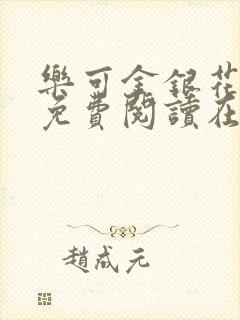 樂可金銀花
免費閱讀在
趙成元